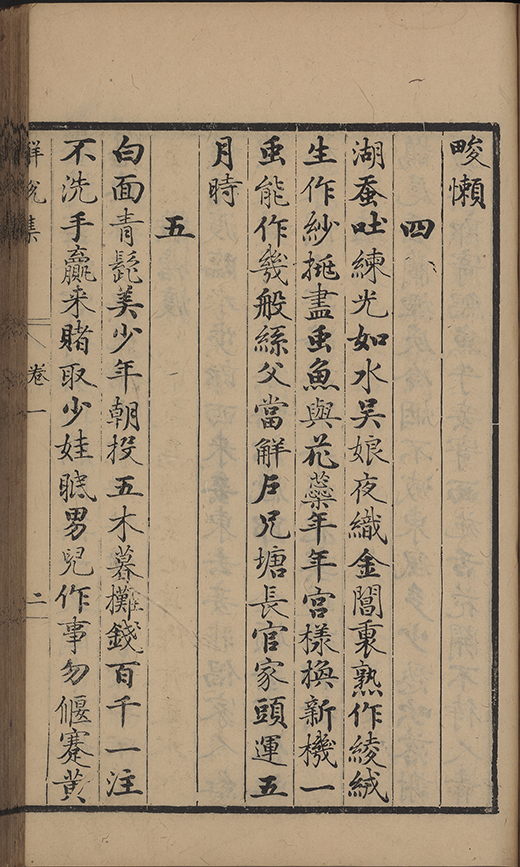 畯懶
四
湖蚕吐練光如水吳娘夜織金閶裏熟作綾絨
生作紗挑盡虫魚與花蘂年年宮樣換新機一
虫能作幾般絲父當解戶兄塘長官家頭運五
月時
五
白面青髭美少年朝投五木暮攤錢百千一注
不洗手贏来賭取少娃眠男兒作事勿偃蹇黄
卷一
二